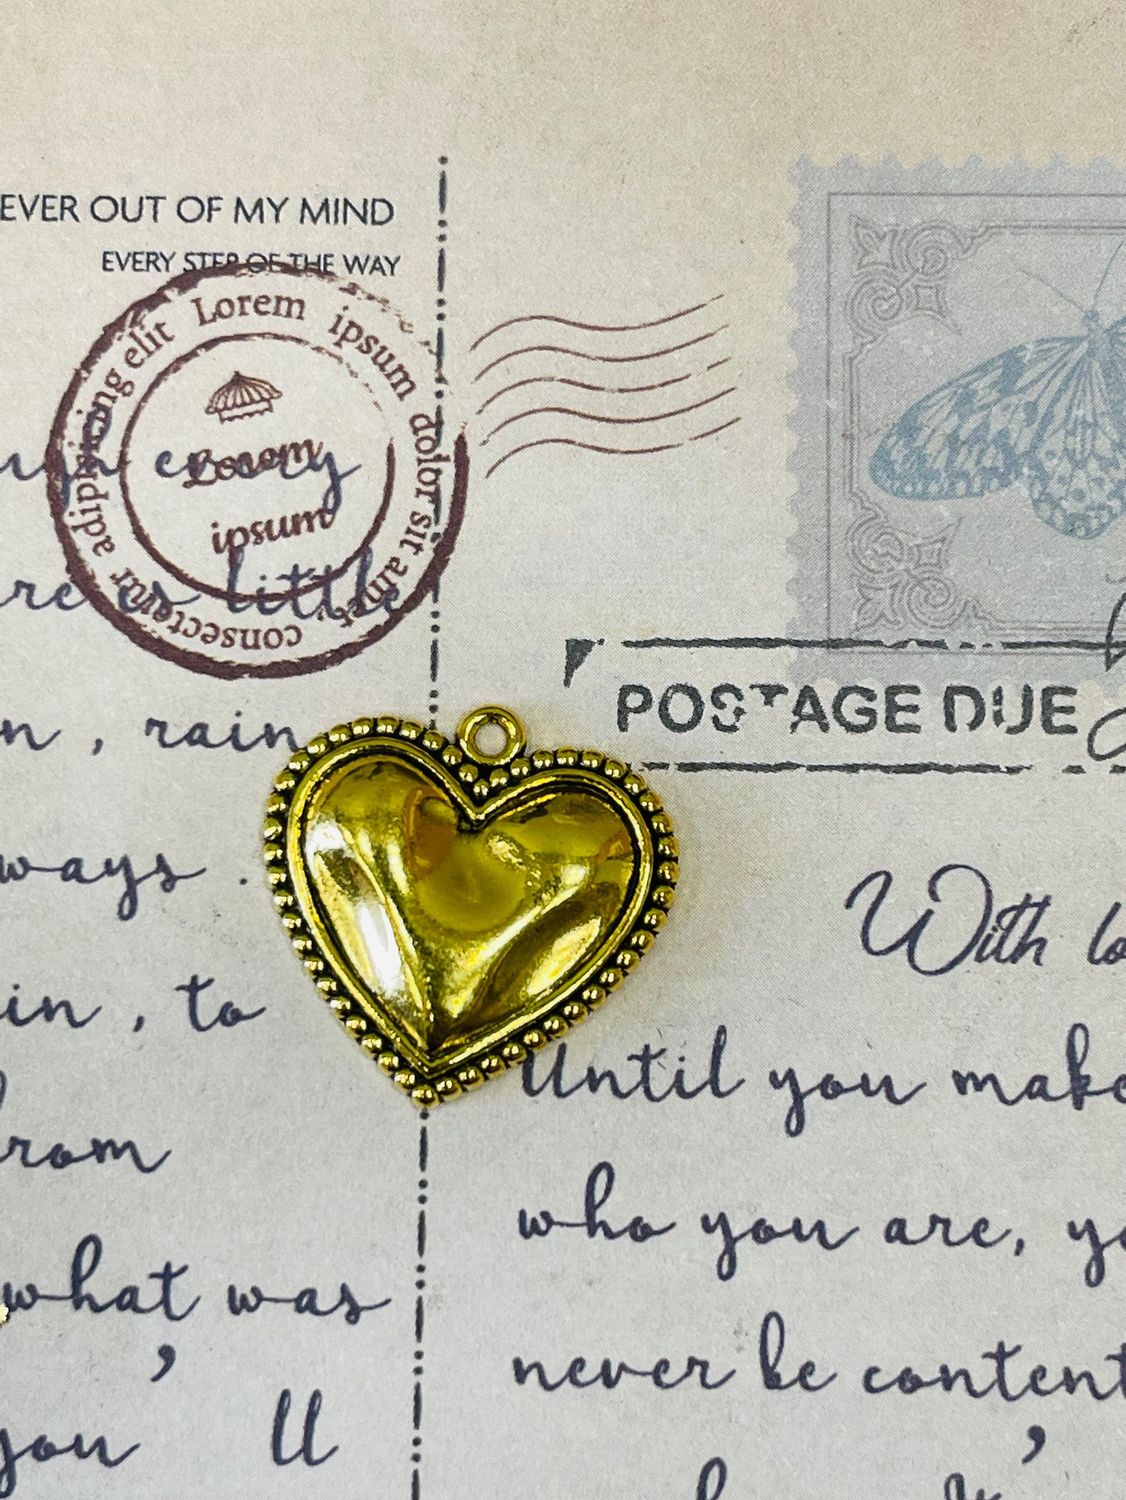 EVER OUT OF MY MIND
EVERY STEP OF THE WAY
Lorem ipsum dolor sit amet, consectetur adipisicing elit
ipsum
every
little
n , rain
ways .
in , to
rom
what was
you ' ll
POSTAGE DUE
With lo
Until you make
who you are, yo
never be content
'